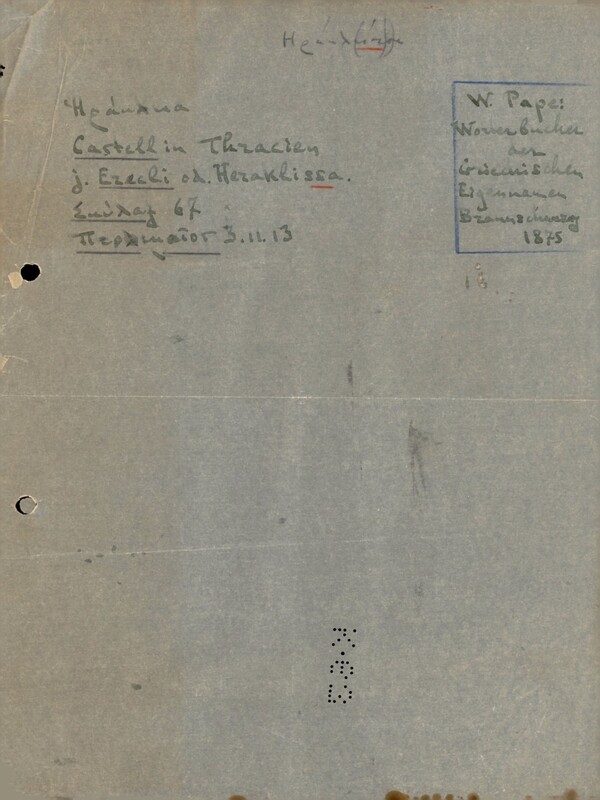 Ἡράκλεια
Castell in Thracien
j. Erecli od. Heraklissa.
Σκύλαξ 67
3.11.13
W. Pape:
Wörterbucher
der
Griechischen
Eigennamen
Braunschweig
1875